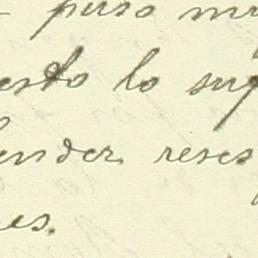 puso mu
esto lo sup
ender. reses
es.